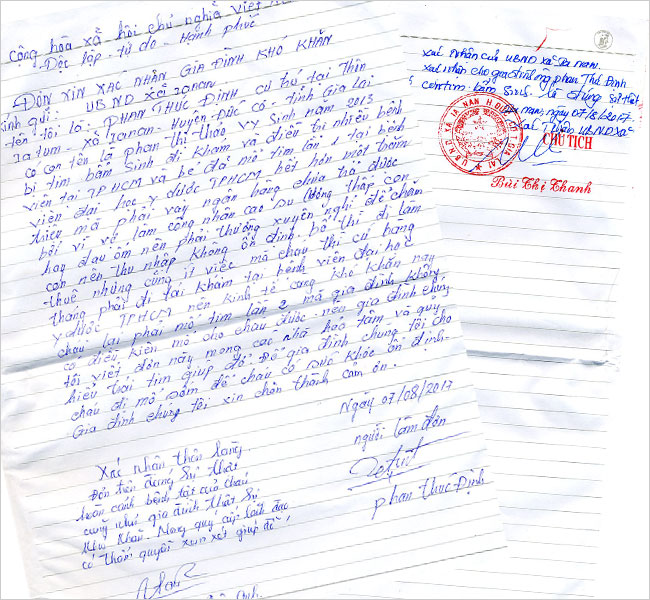 Cộng hòa xã hội chủ nghĩa việt
- Độc lập - tự do - Hạnh phúc
ĐƠN XIN XÁC NHẬN GIA ĐÌNH KHÓ KHĂN
kính gửi: UBND XÃ IANAN
tên tôi là: PHAN THỨC ĐỊNH cư trú tại Thôn
Ia tum - xã Ianan - Huyện - Đức cơ - tỉnh Gia Lai
có con tên là phan thị thảo vy Sinh năm 2013
bị tim bẩm Sinh đi khám và điều trị nhiều bệnh
viện tại TP HCM và bé đã mổ tim lần 1 tại bệnh
viện đại học y dược TPHCM - hết hơn một trăm
triệu mà phải vay ngân hàng chưa trả được
bởi vì vợ làm công nhân cao su lương thấp con
hay đau ốm nên phải thường xuyên nghỉ để chăm
con nên thu nhập không ổn định. bố thì đi làm
thuê nhưng cũng ít việc mà cháu thì cứ hàng
tháng phải đi tái khám tại bệnh viện đại học
y dược TPHCM nên kinh tế càng khó khăn nay
cháu lại phải mổ tim lần 2 mà gia đình không
có điều kiện mổ cho cháu được. nên gia đình chúng
tôi viết đơn này mong các nhà hảo tâm và quỹ
hiểu trái tim giúp đỡ để gia đình chúng tôi cho
cháu đi mổ sớm để cháu có sức khỏe ổn định.
Gia đình chúng tôi xin chân thành cảm ơn.
Ngày 07/08/2017
người làm đơn
phan thức Định
Xác nhận thôn làng
Đơn trên đúng sự thật
hoàn cảnh bệnh tật của cháu
cũng như gia đình thật sự
khó khăn. Mong quý cấp lãnh đạo
có thẩm quyền xem xét giúp đỡ
xác nhận của UBND xã Ia nan.
xác nhận cho gia đình ông phan Thức Định
có con tim bẩm sinh là đúng sự thật
Ia nan, ngày 07/8/2017.
UBND xã
CHỦ TỊCH
Bùi Thị Thanh